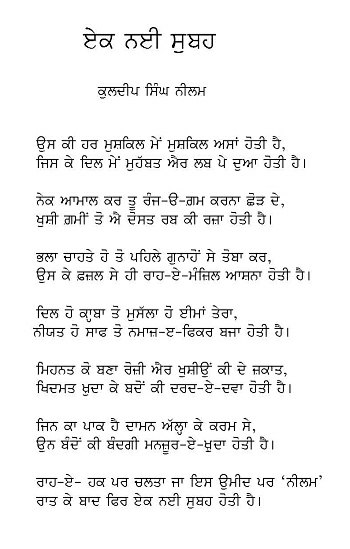 ਏਕ ਨਈ ਸੁਬਹ
ਕੁਲਦੀਪ ਸਿੰਘ ਨੀਲਮ
ਉਸ ਕੀ ਹਰ ਮੁਸ਼ਕਿਲ ਮੇਂ ਮੁਸ਼ਕਿਲ ਅਸਾਂ ਹੋਤੀ ਹੈ,
ਜਿਸ ਕੇ ਦਿਲ ਮੇਂ ਮੁਹੱਬਤ ਐਰ ਲਬ ਪੇ ਦੁਆ ਹੋਤੀ ਹੈ।
ਨੇਕ ਆਮਾਲ ਕਰ ਤੂ ਰੰਜ-ੳ-ਗ਼ਮ ਕਰਨਾ ਛੋੜ ਦੇ,
ਖੁਸ਼ੀ ਗ਼ਮੀਂ ਤੋ ਐ ਦੋਸਤ ਰਬ ਕੀ ਰਜ਼ਾ ਹੋਤੀ ਹੈ।
ਭਲਾ ਚਾਹਤੇ ਹੋ ਤੋ ਪਹਿਲੇ ਗੁਨਾਹੋਂ ਸੇ ਤੋਬਾ ਕਰ,
ਉਸ ਕੇ ਫ਼ਜ਼ਲ ਸੇ ਹੀ ਰਾਹ-ਏ-ਮੰਜ਼ਿਲ ਆਸ਼ਨਾ ਹੋਤੀ ਹੈ।
ਦਿਲ ਹੋ ਕਾ਼ਬਾ ਤੋ ਮੁਸੱਲਾ ਹੋ ਈਮਾਂ ਤੇਰਾ,
ਨੀਯਤ ਹੋ ਸਾਫ ਤੋ ਨਮਾਜ਼-ਏ-ਫਿਕਰ ਬਜਾ ਹੋਤੀ ਹੈ।
ਮਿਹਨਤ ਕੋ ਬਣਾ ਰੋਜ਼ੀ ਐਰ ਖੁਸ਼ੀਉਂ ਕੀ ਦੇ ਜ਼ਕਾਤ,
ਖਿਦਮਤ ਖ਼ੁਦਾ ਕੇ ਬਦੋਂ ਕੀ ਦਰਦ-ਏ-ਦਵਾ ਹੋਤੀ ਹੈ।
ਜਿਨ ਕਾ ਪਾਕ ਹੈ ਦਾਮਨ ਅੱਲ੍ਹਾ ਕੇ ਕਰਮ ਸੇ,
ਉਨ ਬੰਦੋਂ ਕੀ ਬੰਦਗੀ ਮਨਜ਼ੂਰ-ਏ-ਖ਼ੁਦਾ ਹੋਤੀ ਹੈ।
ਰਾਹ-ਏ- ਹਕ ਪਰ ਚਲਤਾ ਜਾ ਇਸ ਉਮੀਦ ਪਰ ‘ਨੀਲਮ’
ਰਾਤ ਕੇ ਬਾਦ ਫਿਰ ਏਕ ਨਈ ਸੁਬਹ ਹੋਤੀ ਹੈ।